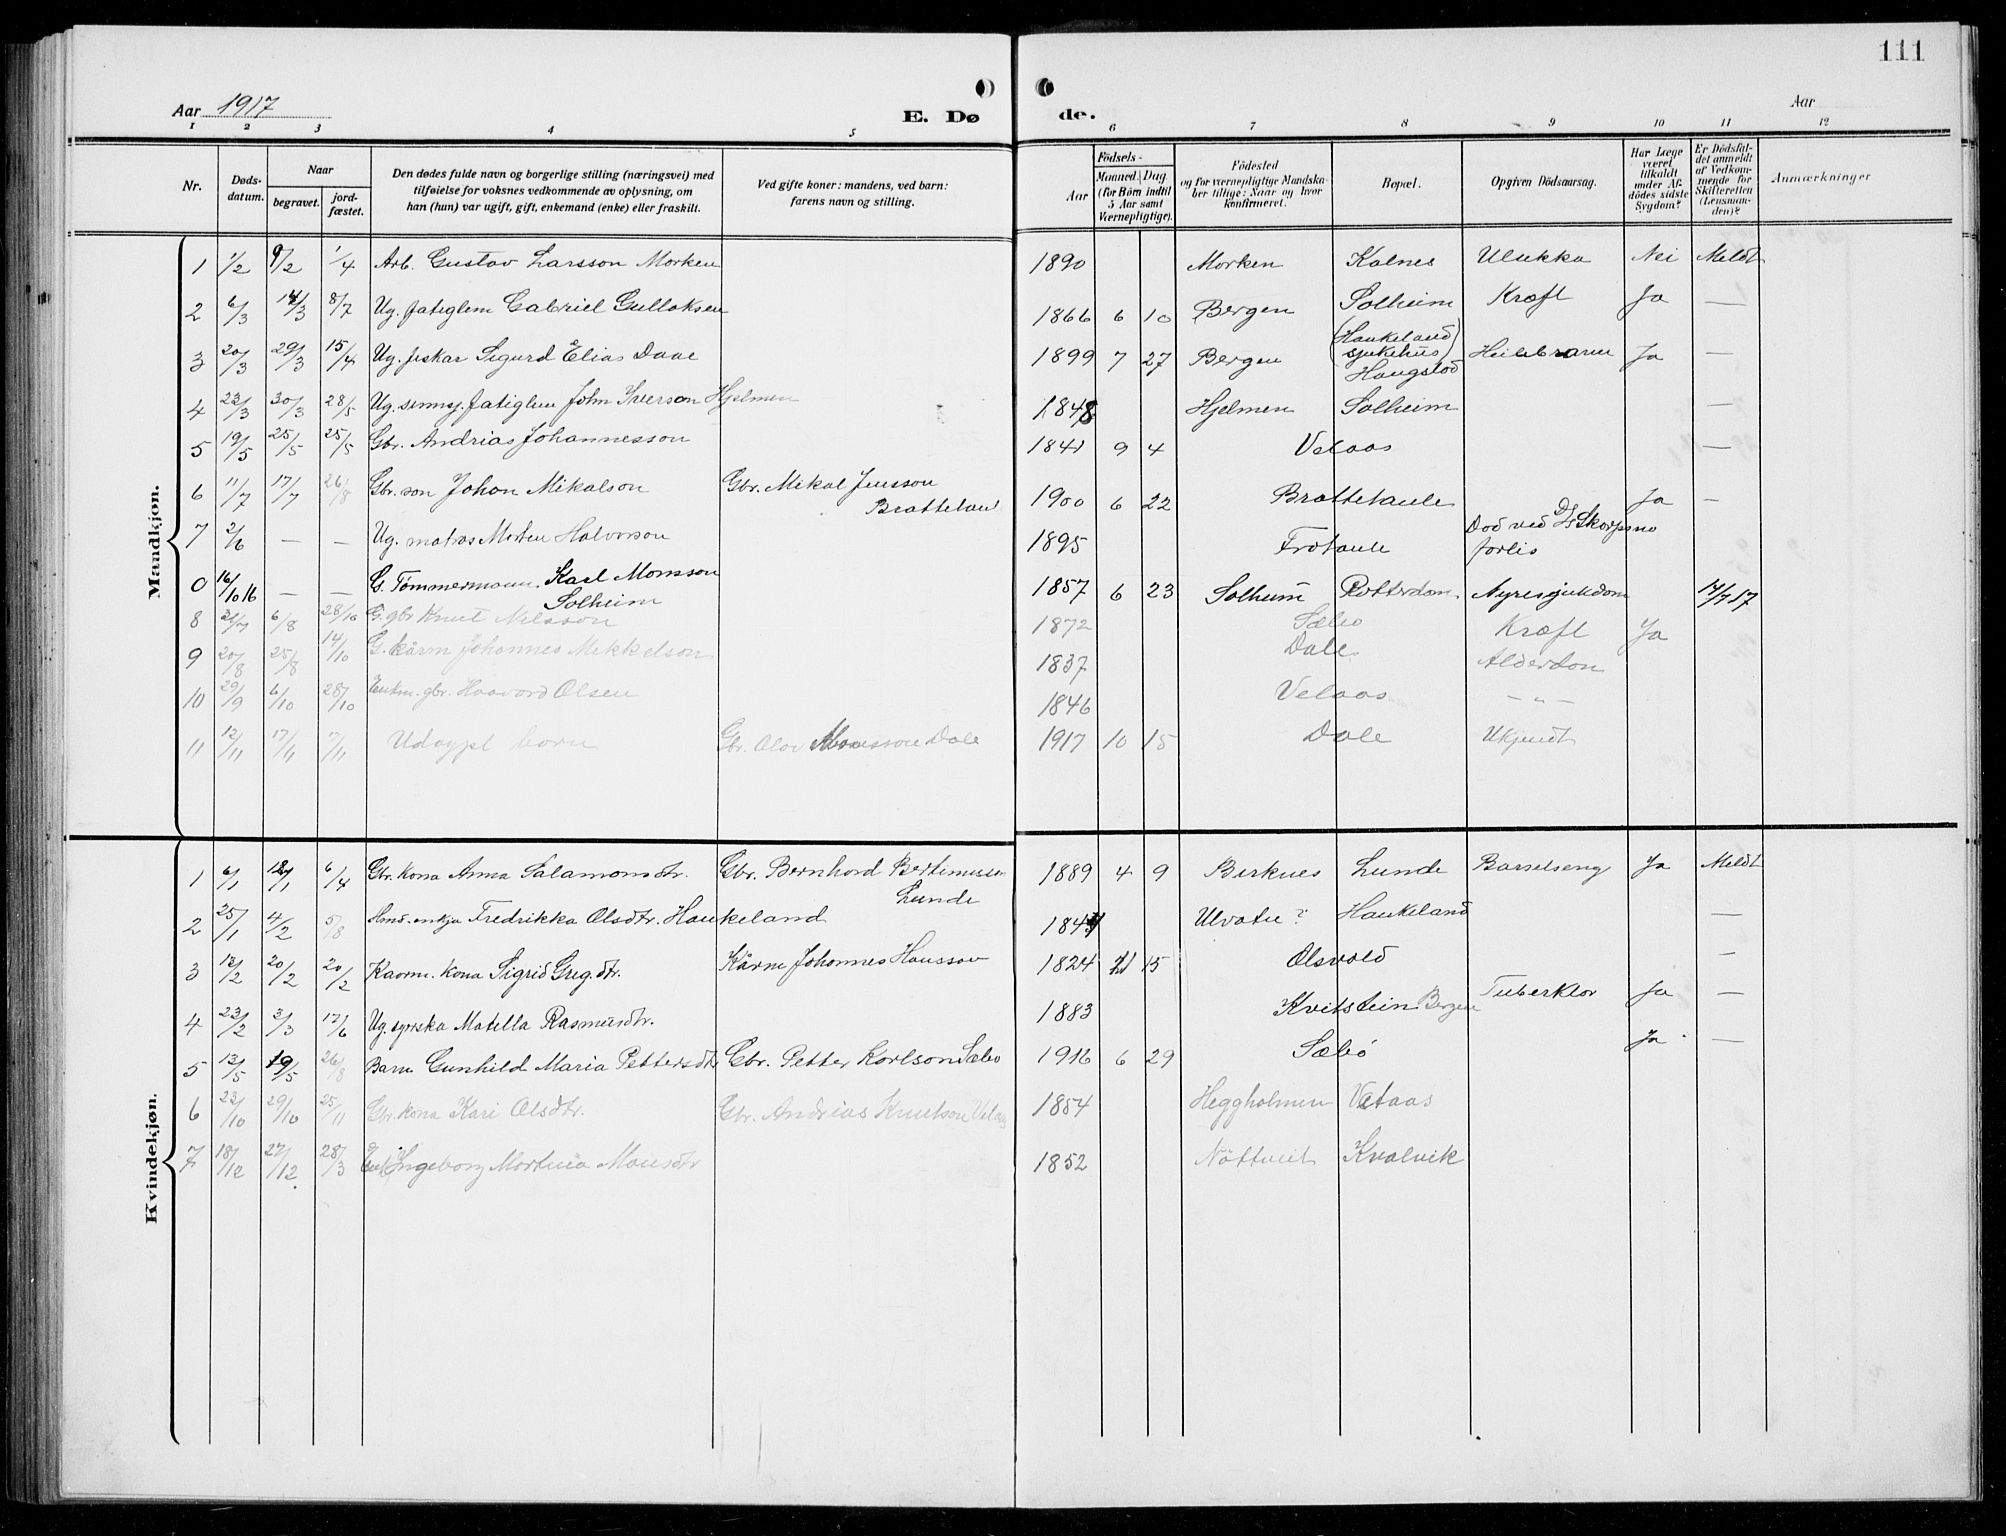 111
Aar 1917
E. Dø
de.
Aar
1 2 3 4 5 6 7 8 9 10 11 12
Nr.
Døds-
datum.
Naar
begravet.
jord-
fæstet.
Den dødes fulde navn og borgerlige stilling (næringsvei) med
tilføielse for voksnes vedkommende av oplysning, om
han (hun) var ugift, gift, enkemand (enke) eller fraskilt.
Ved gifte koner: mandens, ved barn:
farens navn og stilling.
Aar
Födsels-
Maaned. Dag
(for Børn indtil
5 Aar samt
Værnepligtige).
Födested
og for værnepligtige Mandska-
ber tillige: Naar og hvor
konfirmeret.
Bopæl.
Opgiven Dödsaarsag.
Har Læge
været
tilkaldt
under Af-
dødes sidste
Sygdom?
Er Dödsfal-
det anmeldt
af Vedkom-
mende for
Skifteretten
(Lensman-
den)?
Anmærkninger
Mandkjøn.
1 1/2 9/2 1/4 Arb. Gustav Larsson Morken 1890 Morken Kalnes Ulukka Nei Meldt
2 6/3 14/3 8/7 Ug. fatiglem Gabriel Gullaksen 1866 6 10 Bergen Solheim Kræft Ja —
3 20/3 29/3 15/4 Ug. fiskar Sigurd Elias Daae 1899 7 27 Bergen (Haukeland sjukehus) Haugstod Ja —
4 23/3 30/3 28/5 Ug. sinnsj. fatiglem John Iverson Hjelmen 1848 Hjelmen Solheim —
5 19/5 25/5 25/5 Gbr. Andrias Johannesson 1841 9 4 Velaas —
6 11/7 17/7 26/8 Gbr. son Johan Mikalson Gbr. Mikal Jensson
Brattetau 1900 6 22 Brattetaule Ja —
7 2/6 — — Ug. matros Morten Halvorson 1895 Frotaule Dod ved D/S Skorpsno
forlis
0 16/10 16 — — G. Tömmermann. Karl Monsson
Solheim 1857 6 23 Solheim Rotterdam Nyresjukdom 14/7 17
8 31/7 6/8 28/10 G. gbr Knut Nilsson 1872 Sæbo Kræft Ja
9 20/8 25/8 14/10 G. kårm Johannes Mekkelson 1837 Dale Alderdon
10 29/9 6/10 28/10 Enkm. gbr. Haavard Olsen 1846 Velaas — " —
11 12/11 17/11 17/11 Udøypt barn Gbr. Olav Monsson Dale 1917 10 15 Dale Ukjendt
Kvindekjøn.
1 6/1 12/1 6/4 Gbr. kona Anna Salamonsdtr. Gbr. Bernhard Bertinusson
Lunde 1889 4 9 Birknes Lunde Barselseng Ja Meldt
2 25/1 4/2 5/8 Hms. enkja Fredrikka Olsdtr. Haukeland Ulvatn? Haukeland —
3 12/2 20/2 20/2 Kaarm. kona Sigrid Greg.dtr. Kårm Johannes Hansson 1824 11 15 Olsvold —
4 23/2 3/3 17/6 Ug. syrska Matella Rasmusdtr. 1883 Kvitstein Bergen Tuberklor Ja —
5 13/5 19/5 26/8 Barn Gunhild Maria Pettersdtr Gbr. Petter Karlson Sæbo 1916 6 29 Sæbö Ja —
6 23/10 29/10 25/11 Gbr. kona Kari Olsdtr. Gbr. Andrias Knutson Velaas 1854 Heggholmen Velaas
7 18/12 27/12 28/3 Enk. Ingeborg Martnia Monsdtr 1852 Nöttveit Kvalvik